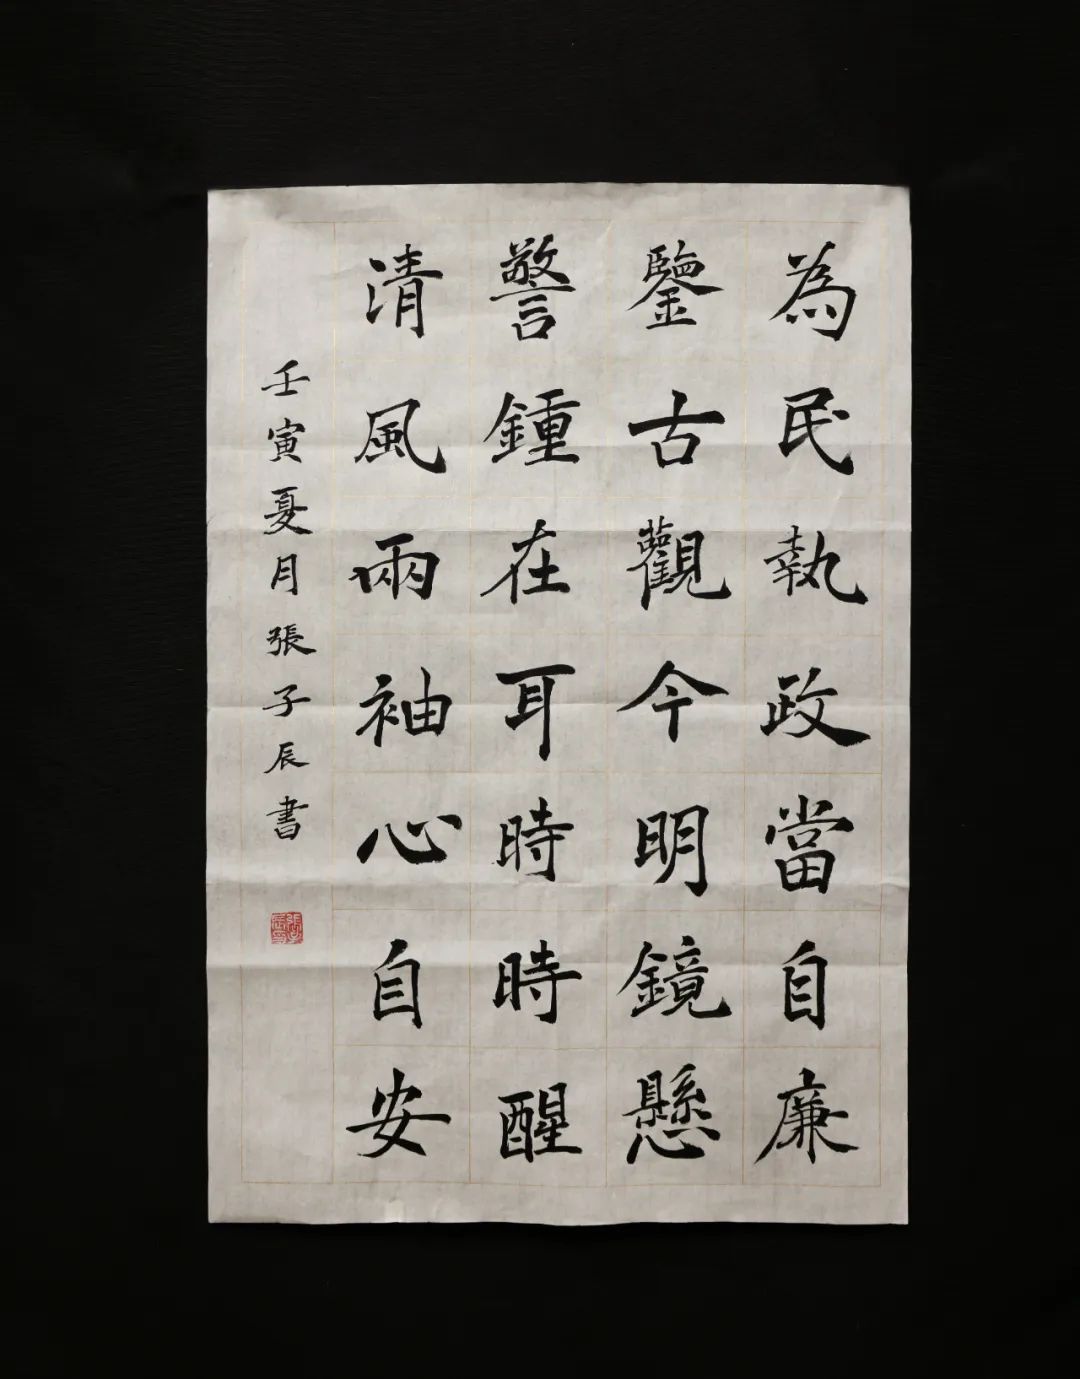 為民執政當自廉
鑒古觀今明鏡懸
警鍾在耳時時醒
清風兩袖心自安
壬寅夏月張子辰書
張子辰印